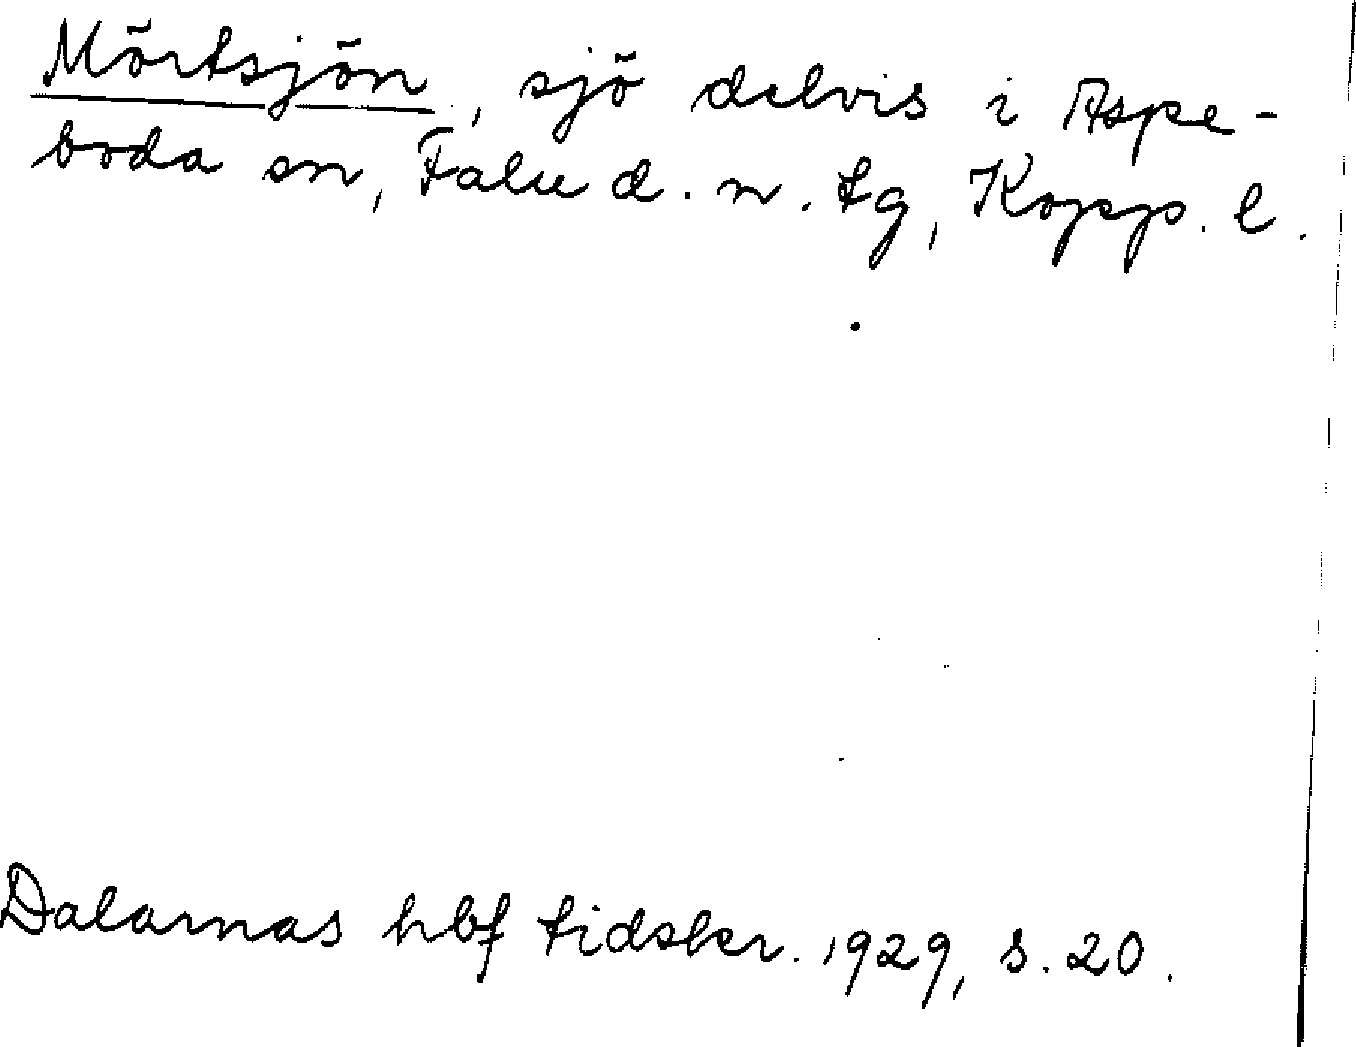 Mörtsjön, sjö delvis i Aspe-
boda sn, Falu d. n. tg, Kopp. l.
Dalarnas hbf tidskr. 1929, s. 20.